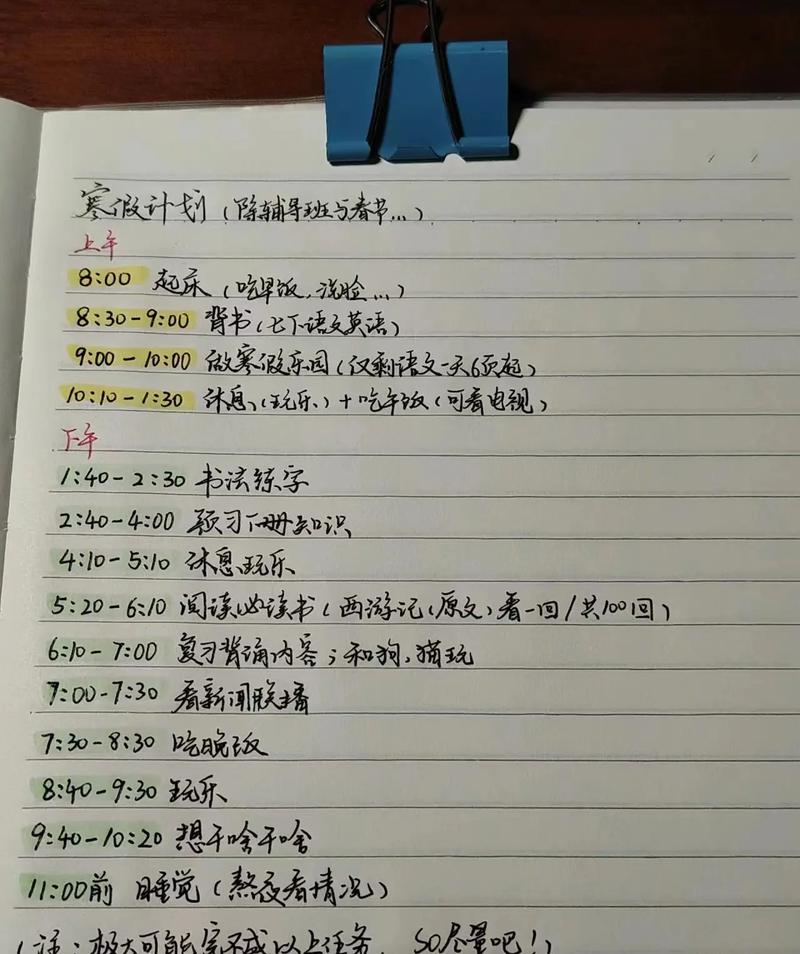 寒假计划（除辅导班与春节...）
上午
8:00 起床（吃早饭，洗脸...）
8:30-9:00 背书（七下语文英语）
9:00-10:00 做寒假乐园（仅剩语文一天6页起）
10:10-1:30 休息（玩乐）+吃午饭（可看电视）
下午
1:40-2:30 书法练字
2:40-4:00 预习下册知识
4:10-5:10 休息玩乐
5:20-6:10 阅读必读书（西游记（原文）看一回/共100回）
6:10-7:00 复习背诵内容；和狗，猫玩
7:00-7:30 看新闻联播
7:30-8:30 吃晚饭
8:40-9:30 玩乐
9:40-10:20 想干啥干啥
11:00前 睡觉（熬夜看情况）
（注：极大可能完不成以上任务，SO尽量吧！）